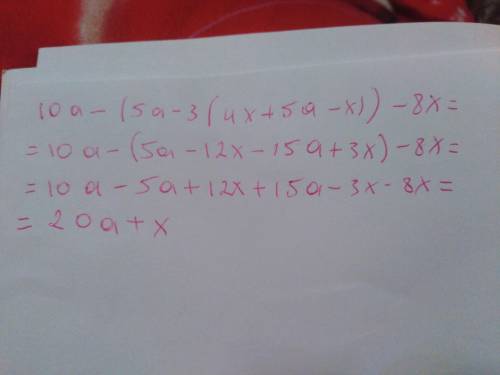 10a-(5a-3(4x+5a-x))-8x=
=10a-(5a-12x-15a+3x)-8x=
=10a-5a+12x+15a-3x-8x=
=20a+x